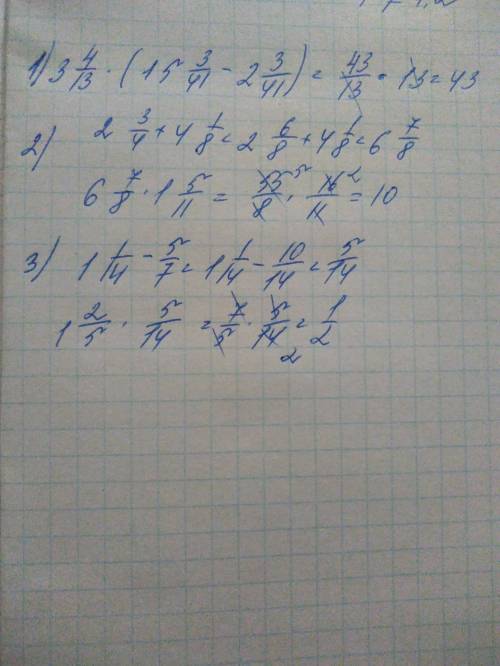 1) 3 4/13 · (15 3/41 - 2 3/41) = 43/13 · 13 = 43
2) 2 3/4 + 4 1/8 = 2 6/8 + 4 1/8 = 6 7/8
6 7/8 · 1 5/11 = 55/8 · 16/11 = 10
3) 1 1/14 - 5/7 = 1 1/14 - 10/14 = 5/14
1 2/5 · 5/14 = 7/5 · 5/14 = 1/2